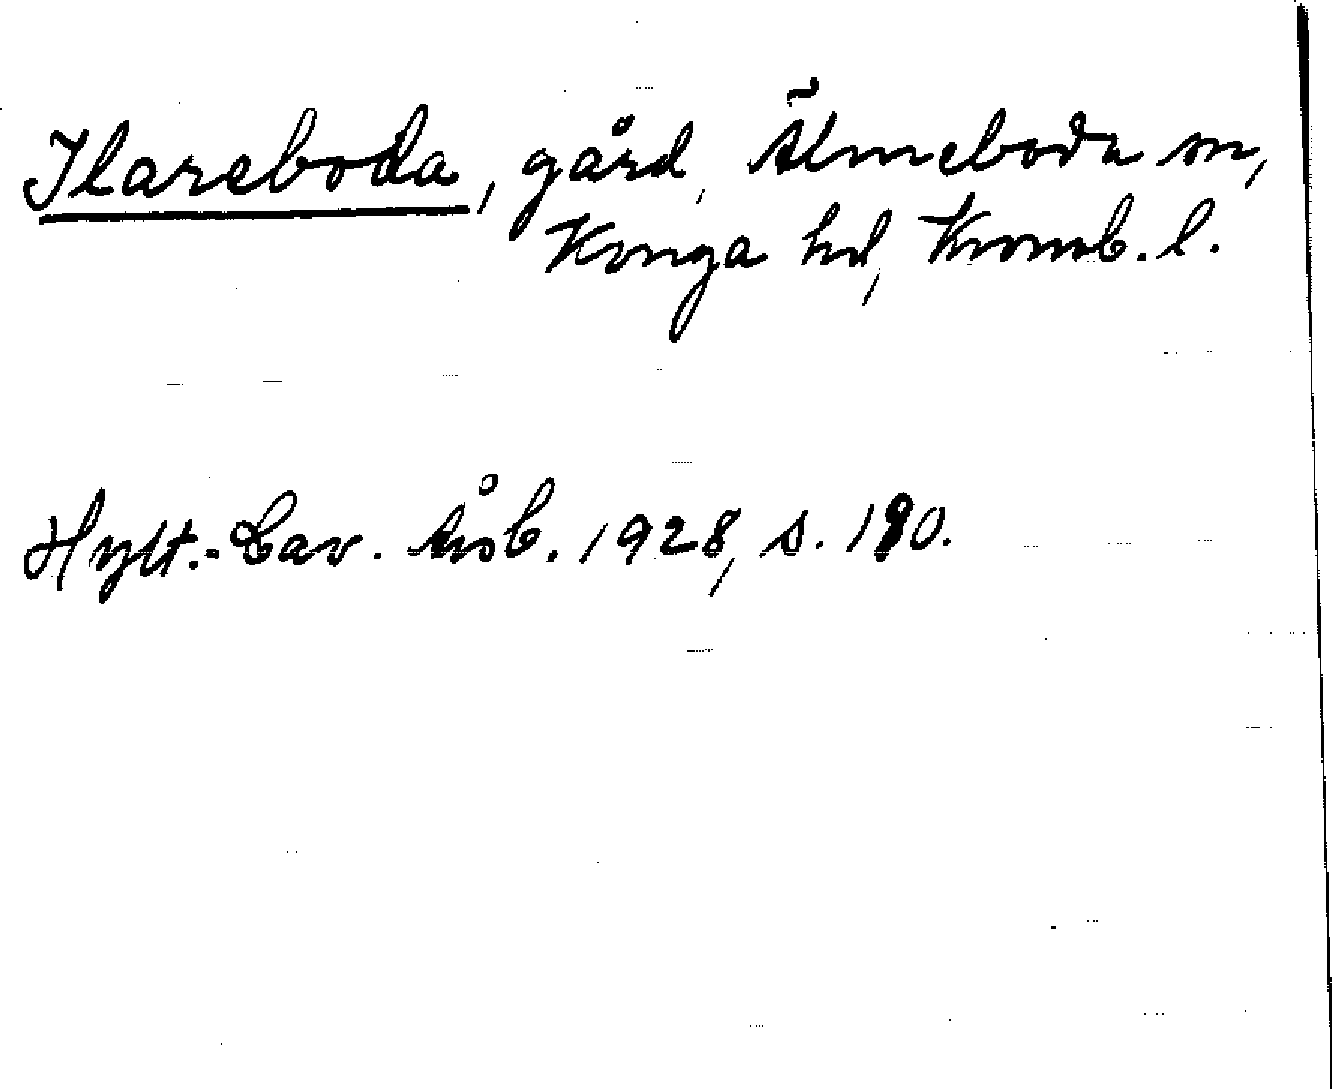 Ilareboda, gård, Älmeboda sn,
Konga hd, Kronob. l.
Hylt.-Cav. Årsb. 1928, s. 190.